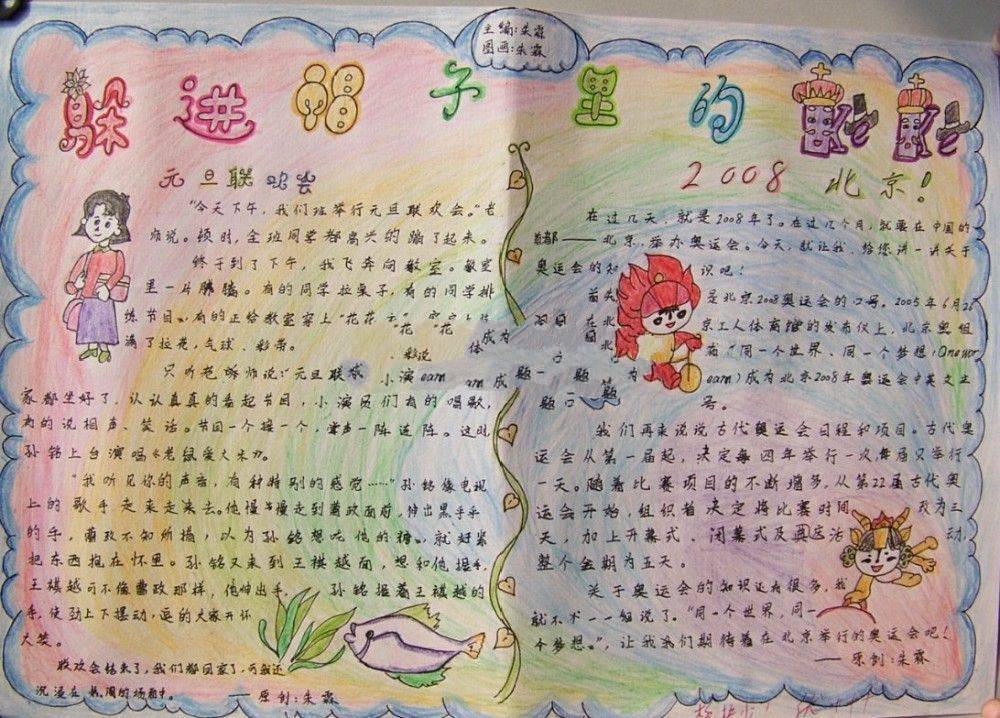 主编:朱霖
图画:朱霖
躲进帽子里的
元旦联欢会
“今天下午，我们班举行元旦联欢会。”老
师说。顿时，全班同学都高兴的蹦了起来。
终于到了下午，我飞奔向教室。教室
里一片 有的同学拉桌子，有的同学排
练节目，有的正给教室穿上“花花
满了拉花，气球、彩带。
只听老师说:“元旦联欢
家都坐好了，认认真真的看起节目，小演员们有的唱歌，
有的说相声、笑话。节目一个接一个，掌声一阵连阵。这时
孙铭上台演唱《老鼠爱大米》。
“我听见你的声音，有种特别的感觉……”孙铭像电视
上的歌手走来走去。他慢慢走到曹政面前，伸出黑乎乎
的手，曹政不知所措，以为孙铭想吃他的糖，就赶紧
把东西抱在怀里。孙铭又来到王祺越面，想和他握手，
王祺越可不像曹政那样，他伸出手， 孙铭握着王祺越的
手，使劲上下摆动，逗的大家开怀
大笑。
联欢会结束了，我们都回家了，可我还
沉浸在热闹的场面中。
——原创:朱霖
2008 北京!
在过几天，就是2008年了。在过几个月，就要在中国的
首都——北京，举办奥运会。今天，就让我，给您讲一讲关于
奥运会的知 识吧!
首先 是北京2008奥运会的口号。2005年6月26
日 在北 京工人体育馆的发布仪上，北京奥组
“同一个世界、同一个梦想(One wor
eam)成为北京2008年奥运会中英文主
题口 号。
我们再来说说古代奥运会日程和项目。古代奥
运会从第一届起，决定每四年举行一次，每届又举行
一天。随着比赛项目的不断增多，从第22届古代奥
运会开始，组织者决定将比赛时间 改为三
天，加上开幕式、闭幕式及奥运活 动，
整个会期为五天。
关于奥运会的知识还有很多，我
就不术一一细说了。“同一个世界，同一
个梦想。”，让我们期待着在北京举行的奥运会吧!
——原创:朱霖